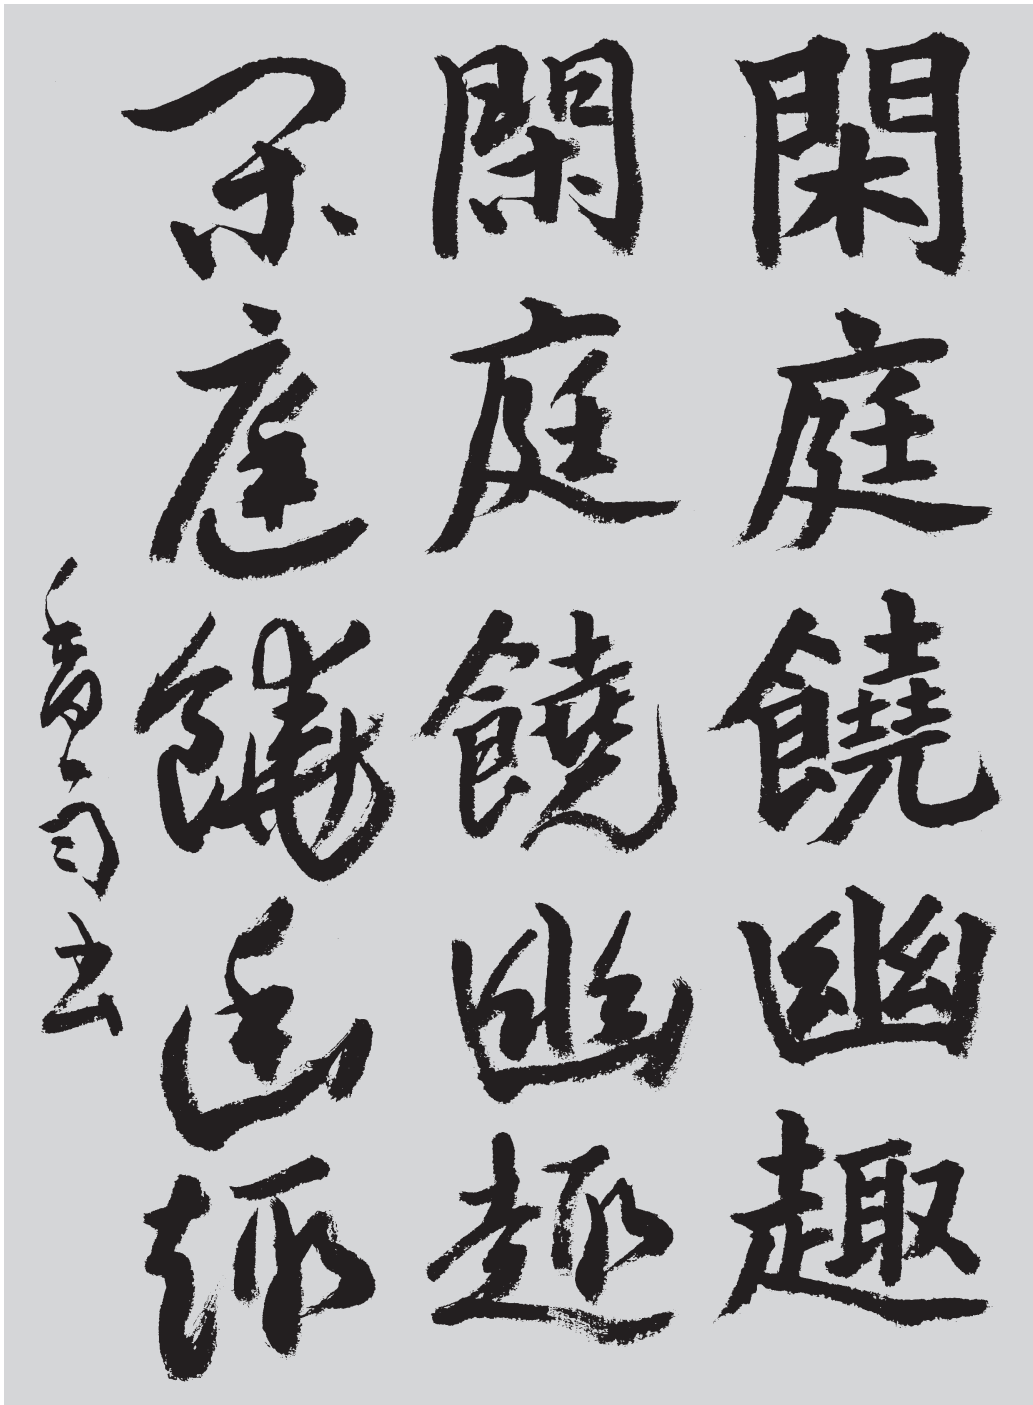 閑庭饒幽趣
閑庭饒幽趣
閑庭饒幽趣
書